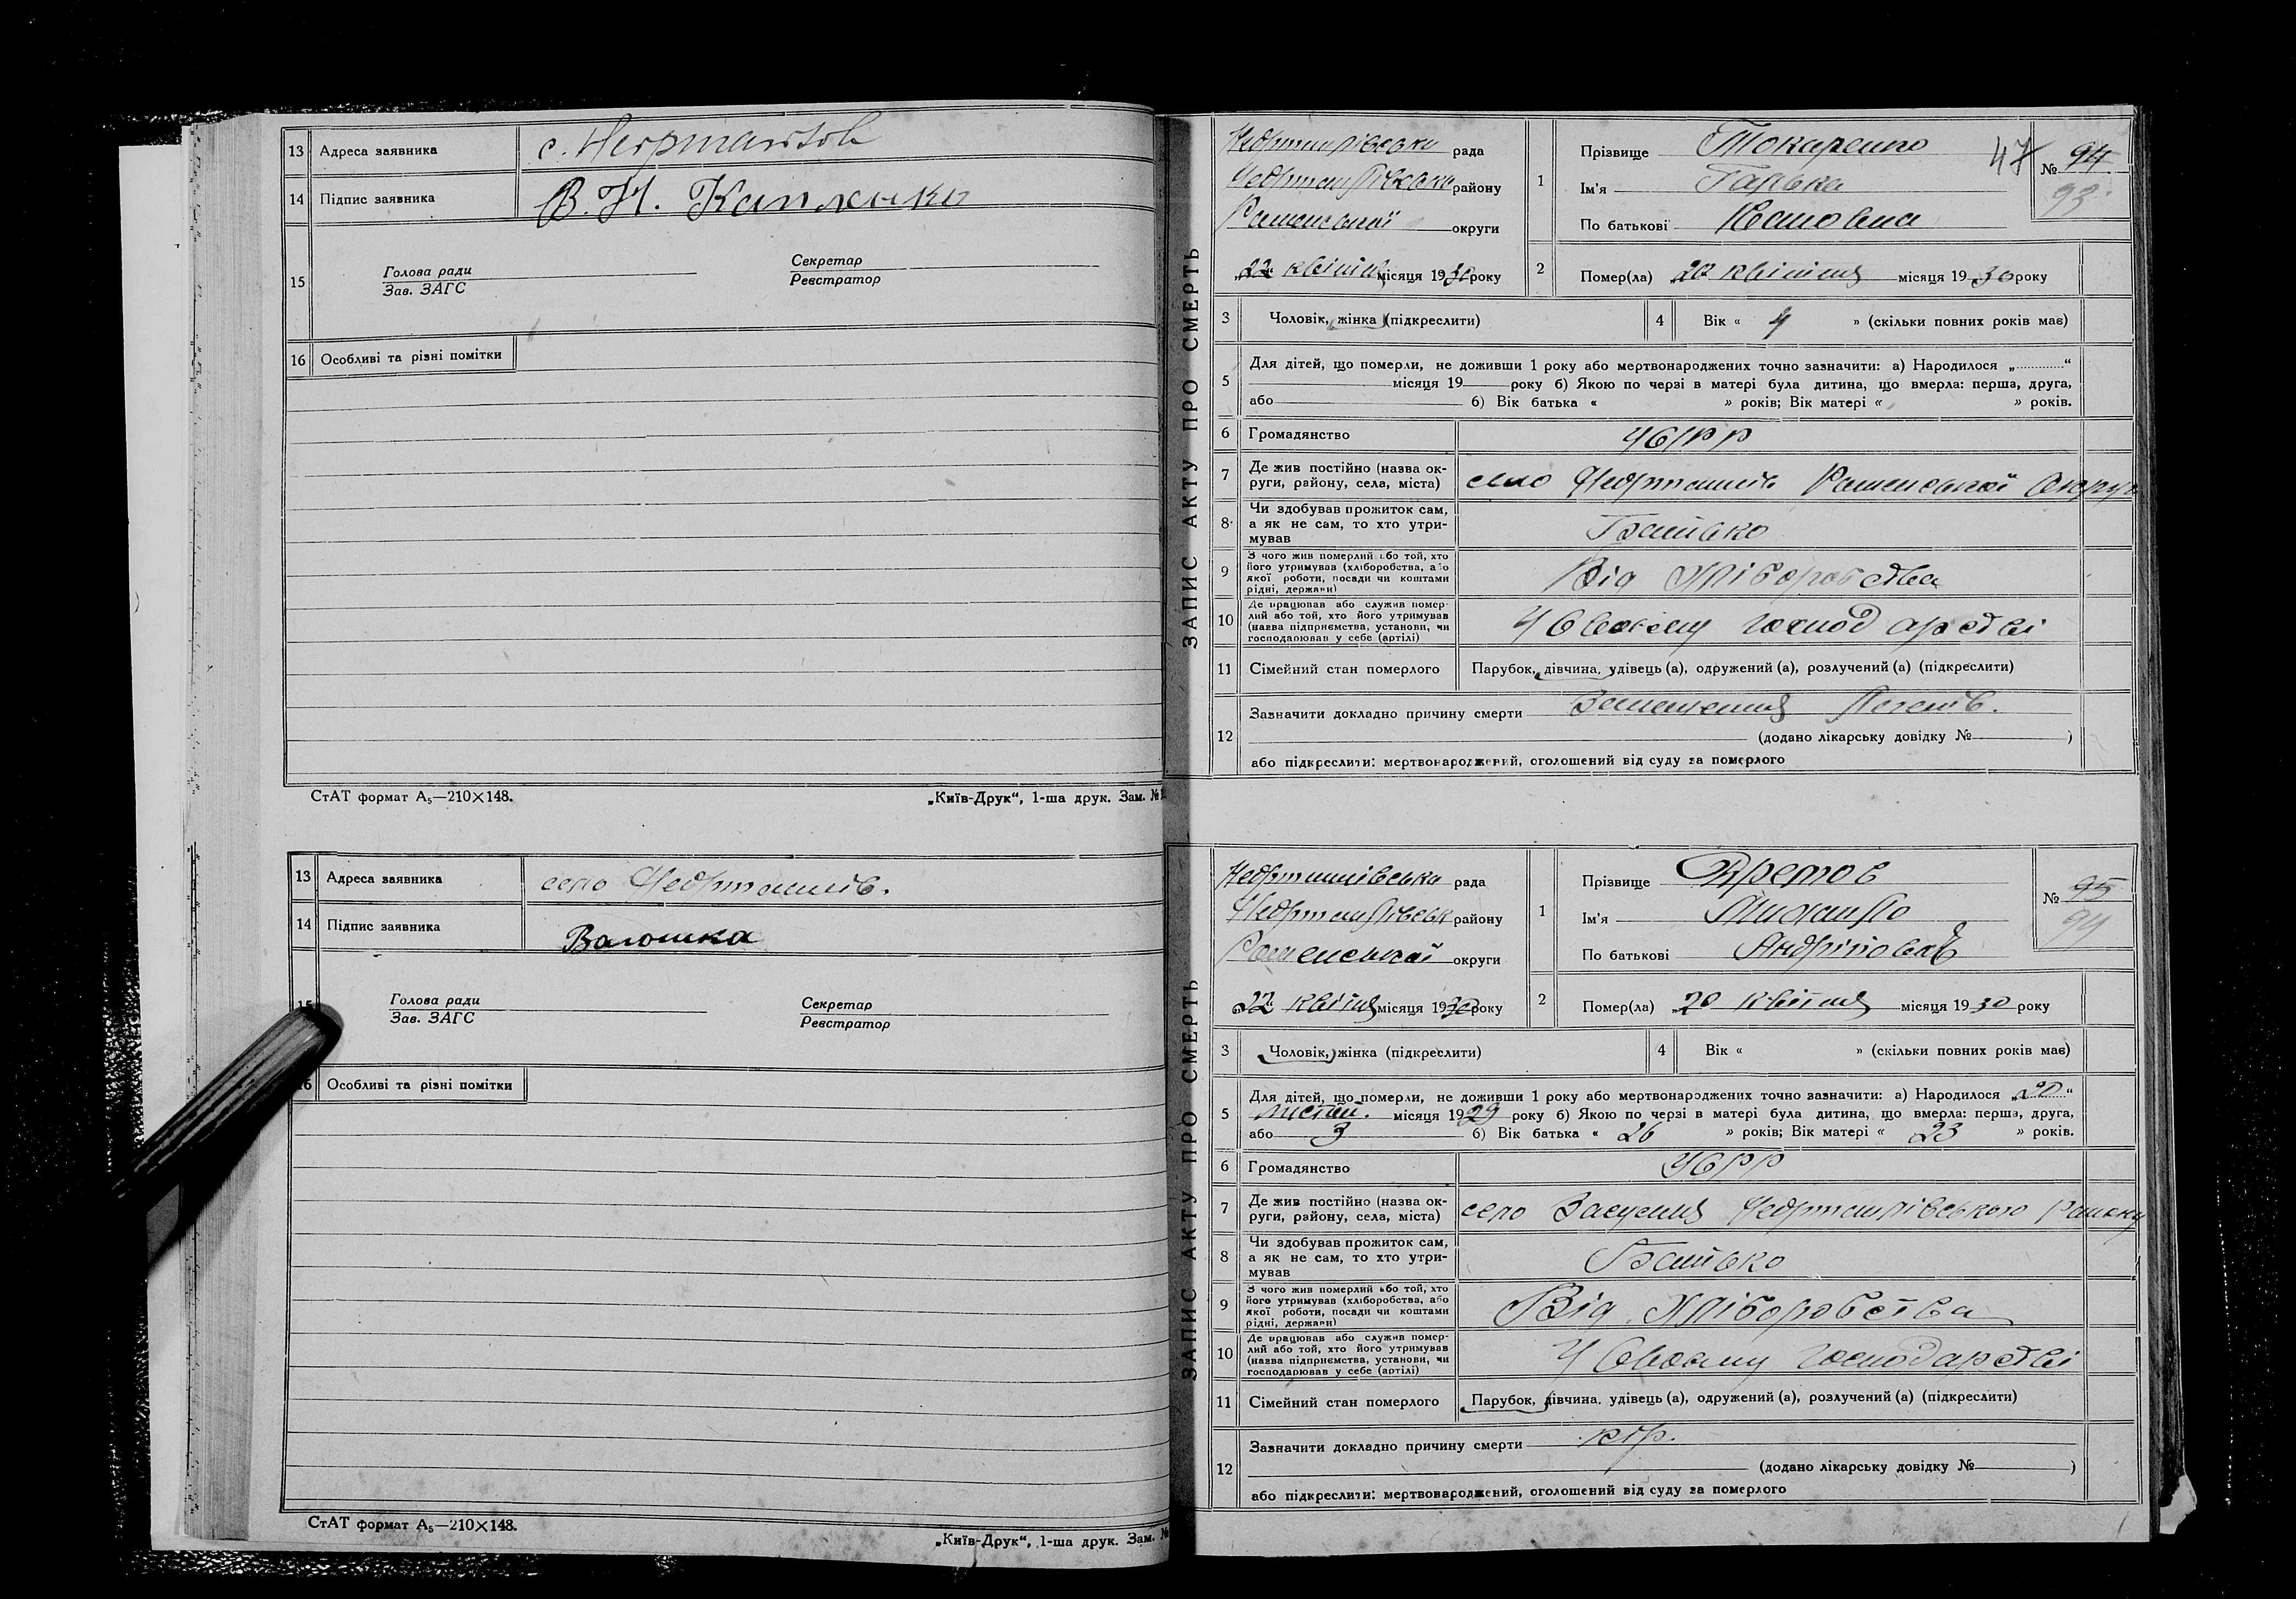 13 Адреса заявника
14 Підпис заявника В. Н.
15 Голова ради Секретар
Зав. ЗАГС Реєстратор
16 Особливі та різні помітки
СтАТ формат А₅—210×148. „Київ-Друк“, 1-ша друк. Зам. №
13 Адреса заявника село Недригайлів.
14 Підпис заявника Волошка
15 Голова ради Секретар
Зав. ЗАГС Реєстратор
16 Особливі та різні помітки
СтАТ формат А₅—210×148. „Київ-Друк“, 1-ша друк. Зам. №
ЗАПИС АКТУ ПРО СМЕРТЬ
47
Недригайлівська рада
Недригайлівськ району
Роменської округи
„22“ квітня місяця 1930 року
1 Прізвище Токаренко
Ім'я Гапька
По батькові Івановна
№ 94
93
2 Помер(ла) „20 квітня місяця 1930 року
3 Чоловік, жінка (підкреслити) 4 Вік « 4 » (скільки повних років має)
5 Для дітей, що померли, не доживши 1 року або мертвонароджених точно зазначити: а) Народилося „ “
місяця 19 року б) Якою по черзі в матері була дитина, що вмерла: перша, друга,
або б) Вік батька « » років; Вік матері « » років.
6 Громадянство УСРР
7 Де жив постійно (назва ок-
руги, району, села, міста) село Недригайлів Роменської Округи
8 Чи здобував прожиток сам,
а як не сам, то хто утри-
мував Батько
9 З чого жив померлий або той, хто
його утримував (хліборобства, або
якої роботи, посади чи коштами
рідні, держави) Від хліборобства
10 Де працював або служив помер-
лий або той, хто його утримував
(назва підприємства, установи, чи
господарював у себе (артілі) У своєму господарстві
11 Сімейний стан померлого Парубок, дівчина, удівець (а), одружений (а), розлучений (а) (підкреслити)
12 Зазначити докладно причину смерти Запалення Легенів.
(додано лікарську довідку № )
або підкреслити: мертвонароджений, оголошений від суду за померлого
ЗАПИС АКТУ ПРО СМЕРТЬ
Недригайлівська рада
Недригайлівськ району
Роменської округи
„22“ квітня місяця 1930 року
1 Прізвище
Ім'я Михайло
По батькові Андрійович
№ 95
94
2 Помер(ла) „20 квітня місяця 1930 року
3 Чоловік, жінка (підкреслити) 4 Вік « » (скільки повних років має)
5 Для дітей, що померли, не доживши 1 року або мертвонароджених точно зазначити: а) Народилося „20“
листоп. місяця 1929 року б) Якою по черзі в матері була дитина, що вмерла: перша, друга,
або 3 б) Вік батька « 26 » років; Вік матері « 23 » років.
6 Громадянство УСРР
7 Де жив постійно (назва ок-
руги, району, села, міста) село Засулля Недригайлівського Району
8 Чи здобував прожиток сам,
а як не сам, то хто утри-
мував Батько
9 З чого жив померлий або той, хто
його утримував (хліборобства, або
якої роботи, посади чи коштами
рідні, держави) Від хліборобства
10 Де працював або служив помер-
лий або той, хто його утримував
(назва підприємства, установи, чи
господарював у себе (артілі) У своєму господарстві
11 Сімейний стан померлого Парубок, дівчина, удівець (а), одружений (а), розлучений (а) (підкреслити)
12 Зазначити докладно причину смерти кір.
(додано лікарську довідку № )
або підкреслити: мертвонароджений, оголошений від суду за померлого